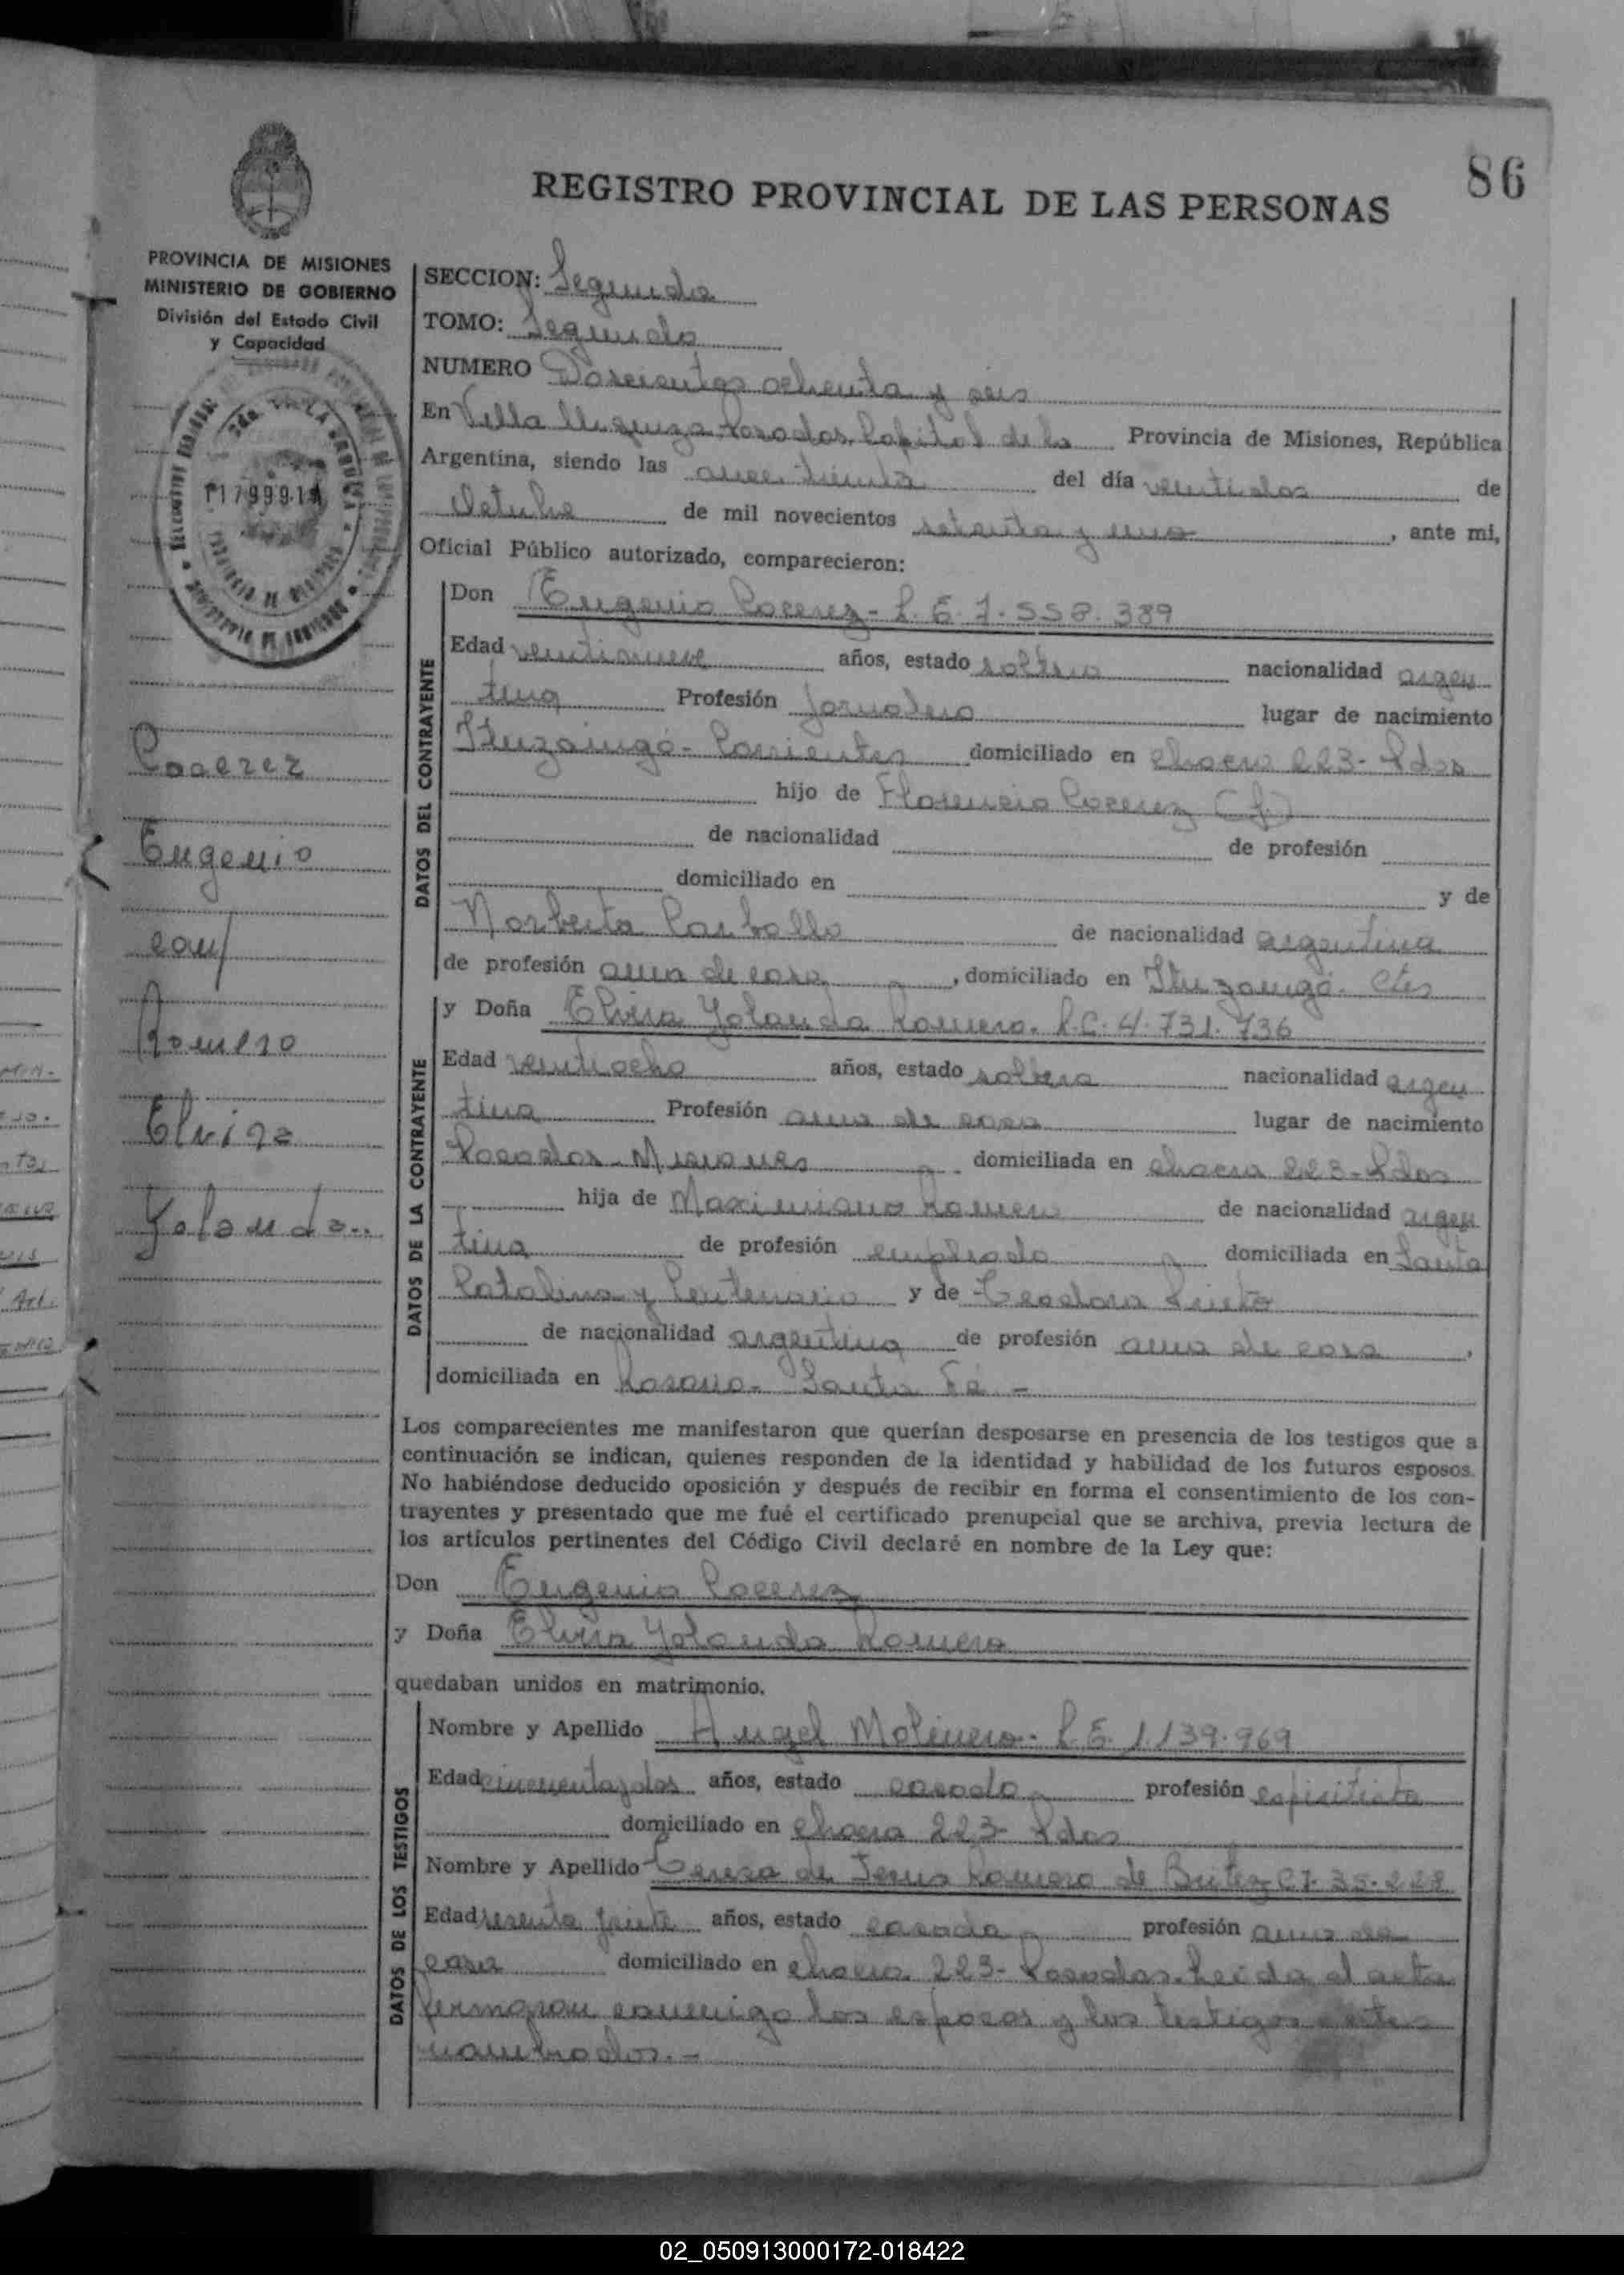 86
REGISTRO PROVINCIAL DE LAS PERSONAS
PROVINCIA DE MISIONES
MINISTERIO DE GOBIERNO
División del Estado Civil
y Capacidad
SECCION: Segunda
TOMO: Segundo
NUMERO Doscientos ochenta y seis
En Villa Urquiza Posadas, Capital de la Provincia de Misiones, República
Argentina, siendo las once treinta del día veintidos de
Octubre de mil novecientos setenta y uno, ante mi,
Oficial Público autorizado, comparecieron:
DATOS DEL CONTRAYENTE
Don Eugenio Cocerez - L.E. 7.558.389
Edad veintinueve años, estado soltero nacionalidad argen
tina Profesión Jornalero lugar de nacimiento
Ituzaingó - Corrientes domiciliado en chacra 223 - Pdas
hijo de Florencio Cocerez (f)
de nacionalidad de profesión
domiciliado en y de
Norberta Carballo de nacionalidad argentina
de profesión ama de casa, domiciliado en Ituzaingó - Ctes
DATOS DE LA CONTRAYENTE
y Doña Elvira Yolanda Romero. L.C. 4.731.736
Edad veintiocho años, estado soltera nacionalidad argen
tina Profesión ama de casa lugar de nacimiento
Posadas - Misiones domiciliada en chacra 223 - Pdas
hija de Maximiano Romero de nacionalidad argen
tina de profesión empleado domiciliada en Santa
Catalina y Centenario y de Teodora Prieto
de nacionalidad argentina de profesión ama de casa,
domiciliada en Rosario - Santa Fé -
Los comparecientes me manifestaron que querían desposarse en presencia de los testigos que a
continuación se indican, quienes responden de la identidad y habilidad de los futuros esposos.
No habiéndose deducido oposición y después de recibir en forma el consentimiento de los con-
trayentes y presentado que me fué el certificado prenupcial que se archiva, previa lectura de
los artículos pertinentes del Código Civil declaré en nombre de la Ley que:
Don Eugenio Cocerez
y Doña Elvira Yolanda Romero
quedaban unidos en matrimonio.
DATOS DE LOS TESTIGOS
Nombre y Apellido Angel Molinero - L.E. 1.139.969
Edad cincuenta y dos años, estado casado profesión espiritista
domiciliado en chacra 223 - Pdas
Nombre y Apellido Teresa de Jesus Romero de Britez CI. 35.228
Edad sesenta y siete años, estado casada profesión ama de
casa domiciliado en chacra 223 - Posadas. Leida el acta
firmaron conmigo los esposos y los testigos ante
nombrados. -
Cocerez
Eugenio
con/
Romero
Elvira
Yolanda..
1799914
02_050913000172-018422